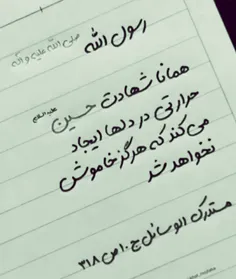 رسول الله صلی الله علیه و آله
همانا شهادت حسین علیه السلام
حرارتی در دلها ایجاد
می کند که هرگز خاموش
نخواهد شد
مستدرک الوسائل ج ۱۰ ص ۳۱۸